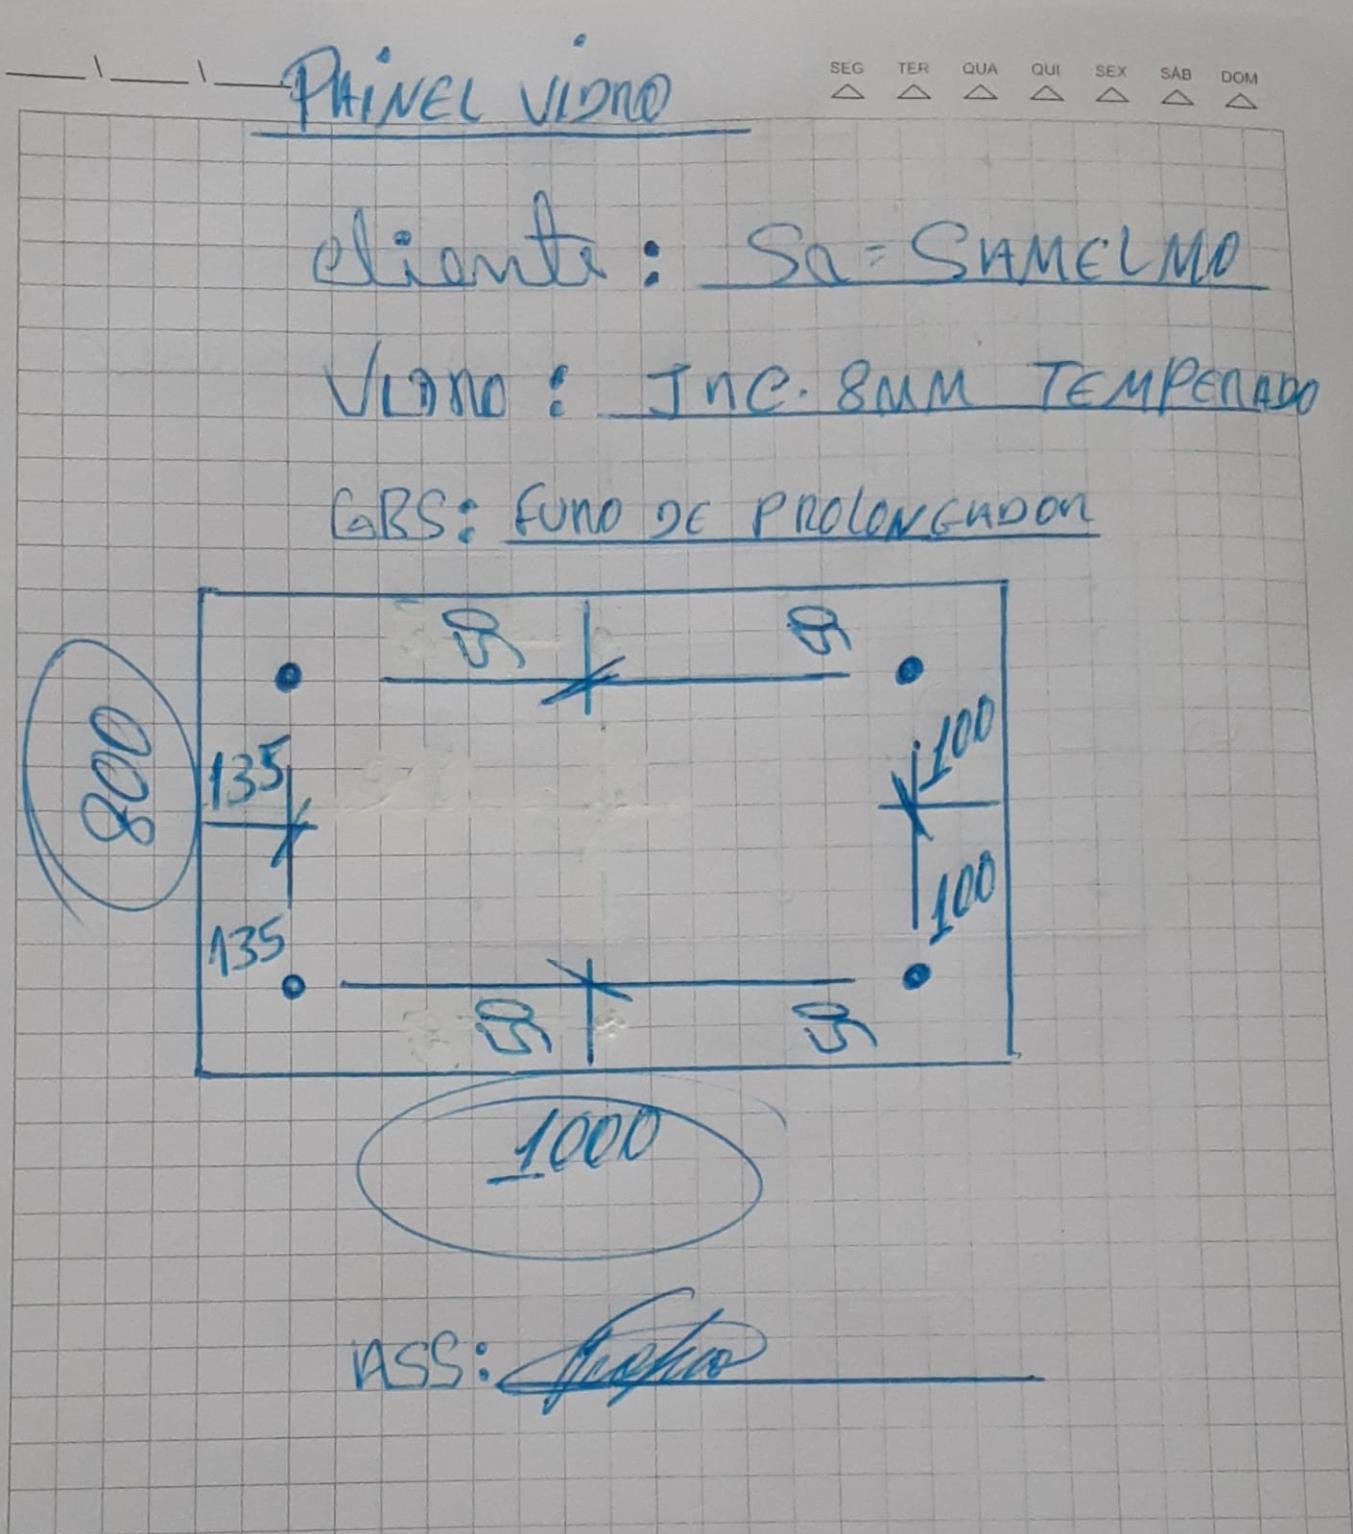 SEG TER QUA QUI SEX SÁB DOM
PAINEL VIDRO
cliente: Sa = SAMELMO
VIDRO: INC. 8MM TEMPERADO
OBS: FURO DE PROLONGADOR
50 50
800
135 100
135 100
50 50
1000
ASS: